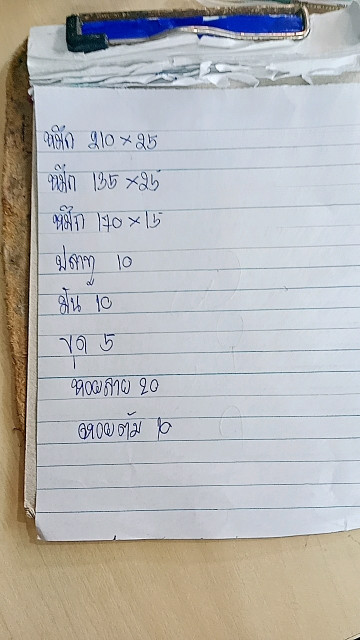 หมึก 210 × 25
หมึก 135 × 25
หมึก 170 × 15
ปลาทู 10
มัน 10
ชุด 5
หอยลาย 20
หอยต้ม 10